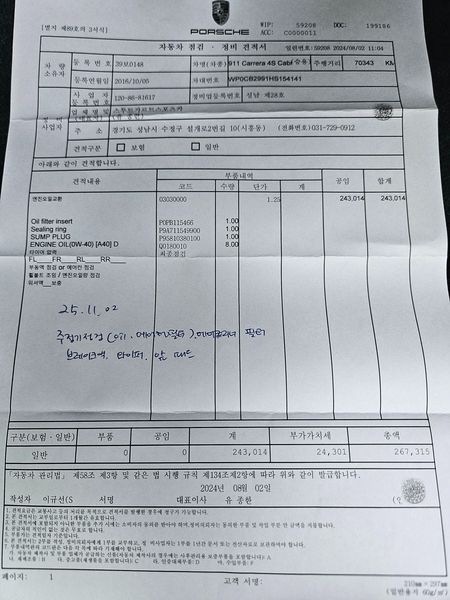 [별지 제89호의 3서식]
PORSCHE
WIP: 59208 DOC: 199186
ACC: C0000011
자동차 점검 · 정비 견적서 일련번호: 59208 2024/08/02 11:04
차량 소유자 등록번호 39보0148 차명(차종) 911 Carrera 4S Cabr 주행거리 70343 KM
등록연월일 2016/10/05 차대번호 WP0CB2991HS154141
사업자 등록번호 120-86-81617 정비업등록번호 성남 제28호
정비 사업자 업체명 및
주소 경기도 성남시 수정구 설개로2번길 10(시흥동) (전화번호)031-729-0912
견적구분 보험 일반
아래와 같이 견적합니다.
견적내용 부품내역 공임 합계
코드 수량 단가 계
엔진오일교환 03030000 1.25 243,014 243,014
Oil filter insert P0PB115466 1.00
Sealing ring P9A711549900 1.00
SUMP PLUG P95810380100 1.00
ENGINE OIL(0W-40) [A40] D Q0180010 8.00
타이어 압력 최종점검
FL___FR___RL___RR___
부동액 점검 or 에어컨 점검
휠볼트 조임 / 엔진오일량 점검
워셔액__보충
25.11.02
주정기점검 (oil, 에어필터), 에어컨 필터
브레이크액, 와이퍼, 앞 패드
구분(보험 · 일반) 부품 공임 계 부가가치세 총액
일반 0 0 243,014 24,301 267,315
「자동차 관리법」 제58조 제3항 및 같은 법 시행 규칙 제134조제2항에 따라 위와 같이 발급합니다.
2024년 08월 02일
작성자 이규선(S 서명 대표이사 유종한
페이지: 1 고객 서명:
210mm × 297mm
(일반용지 60g/㎡)